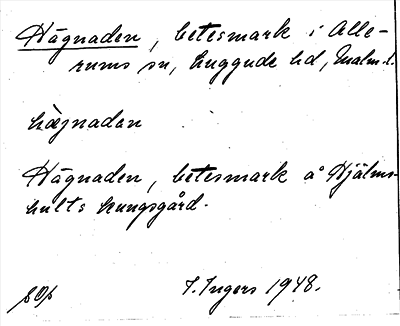 Hägnaden, betesmark i Alle-
rums sn, Luggude hd, Malm. l.
hägnadan
Hägnaden, betesmark å Hjälms-
hults kungsgård.
I. Ingers 1948.